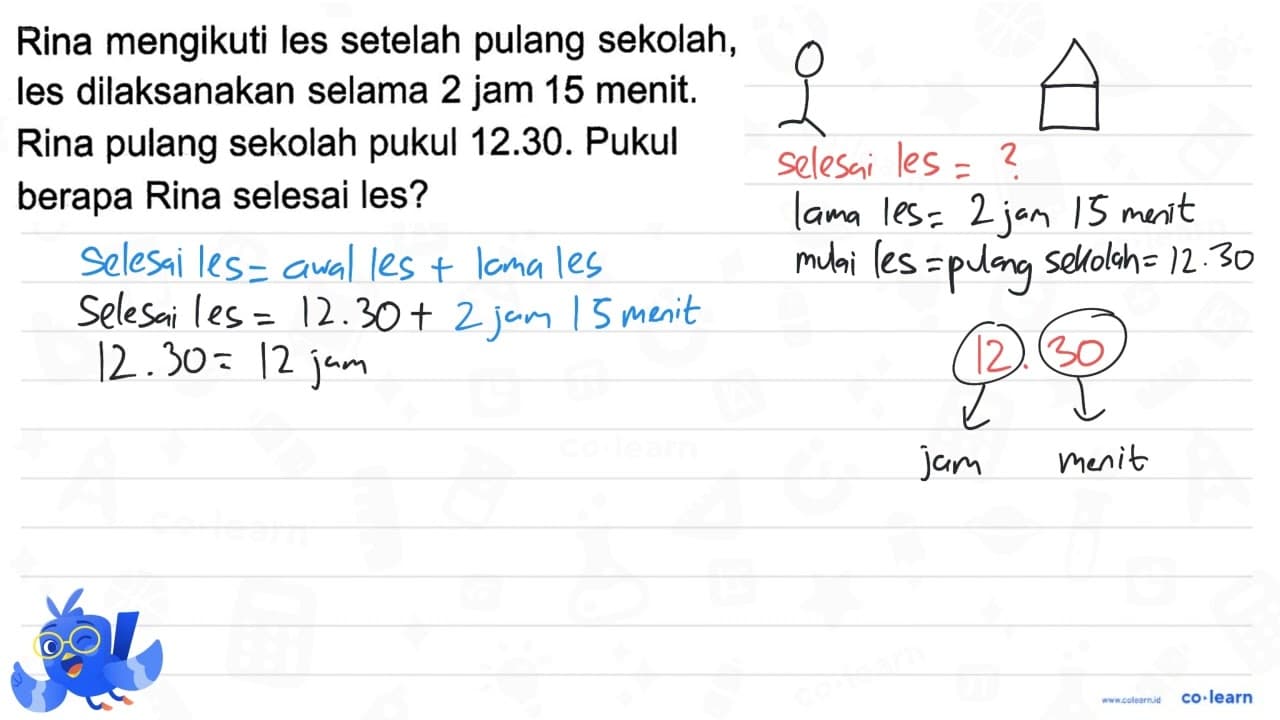 Rina mengikuti les setelah pulang sekolah,
les dilaksanakan selama 2 jam 15 menit.
Rina pulang sekolah pukul 12.30. Pukul
berapa Rina selesai les?
selesai les = ?
lama les = 2 jam 15 menit
mulai les = pulang sekolah = 12.30
Selesai les = awal les + lama les
Selesai les = 12.30 + 2 jam 15 menit
12.30 = 12 jam
12.30
jam menit
co·learn
co·learn
co·learn
www.colearn.id co·learn